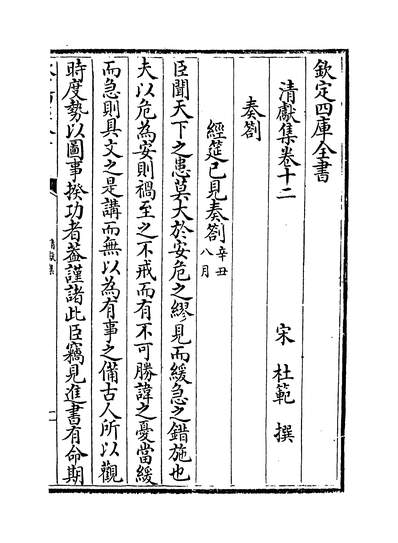 欽定四庫全書
清獻集卷十二
宋 杜範 撰
奏劄
經筵已見奏劄辛丑八月
臣聞天下之患莫大於安危之繆見而緩急之錯施也
夫以危為安則禍至之不戒而有不可勝諱之憂當緩
而急則具文之是講而無以為有事之備古人所以觀
時度勢以圖事揆功者葢謹諸此臣竊見進書有命期